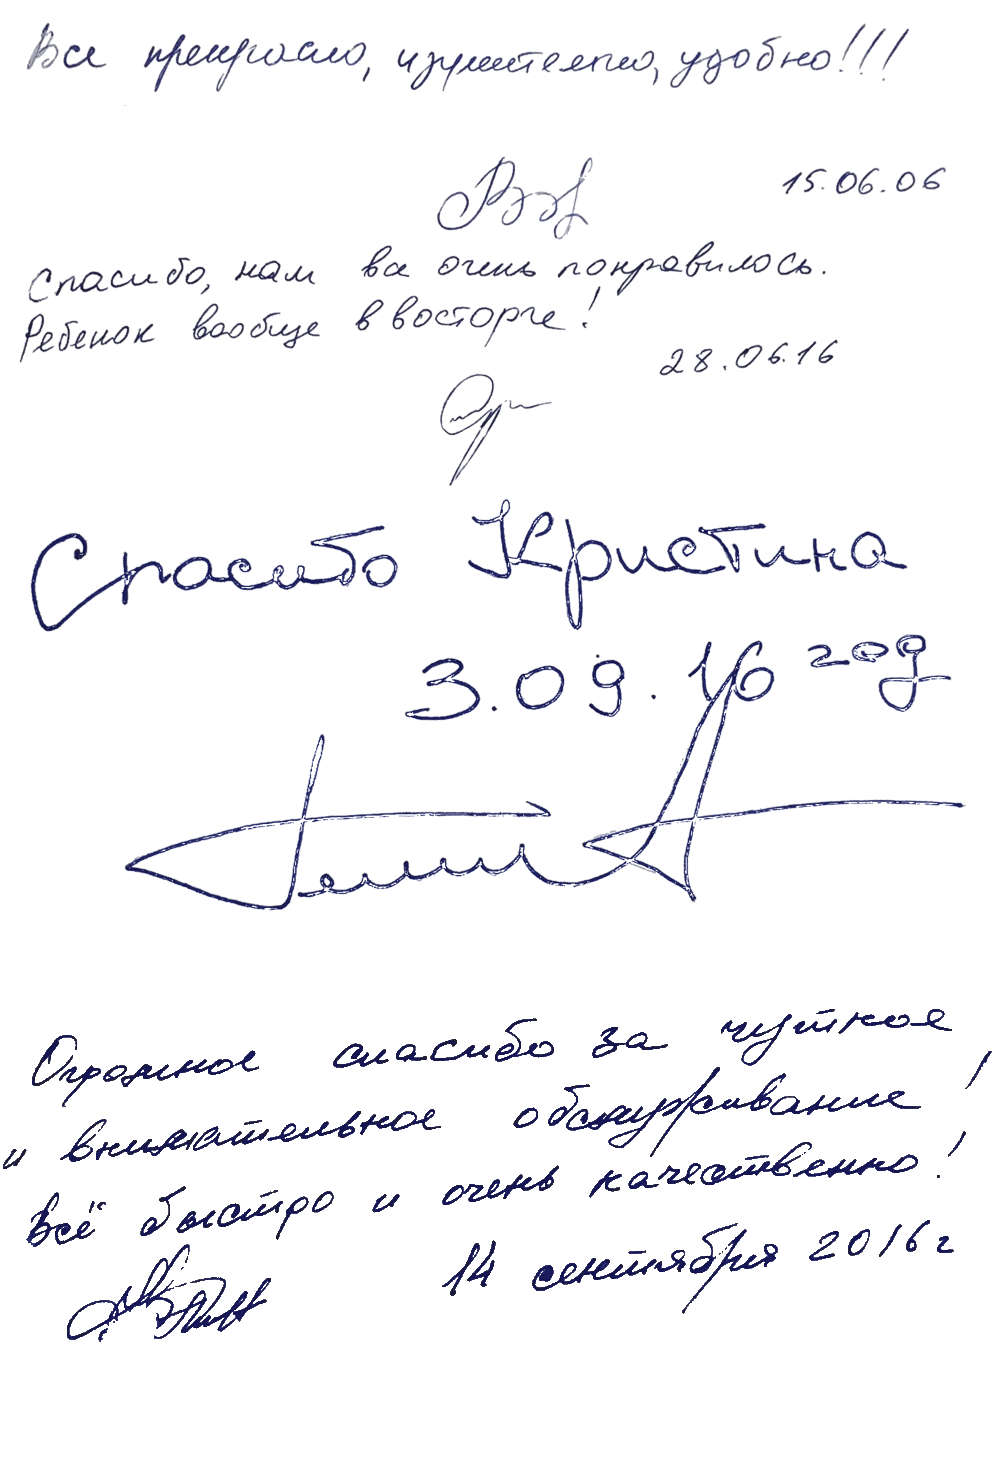 Все прекрасно, изумительно, удобно!!!
15.06.06
Спасибо, нам все очень понравилось.
Ребенок вообще в восторге!
28.06.16
Спасибо Кристина
3.09.16 год
Огромное спасибо за чуткое
и внимательное обслуживание!
Всё быстро и очень качественно!
14 сентября 2016 г